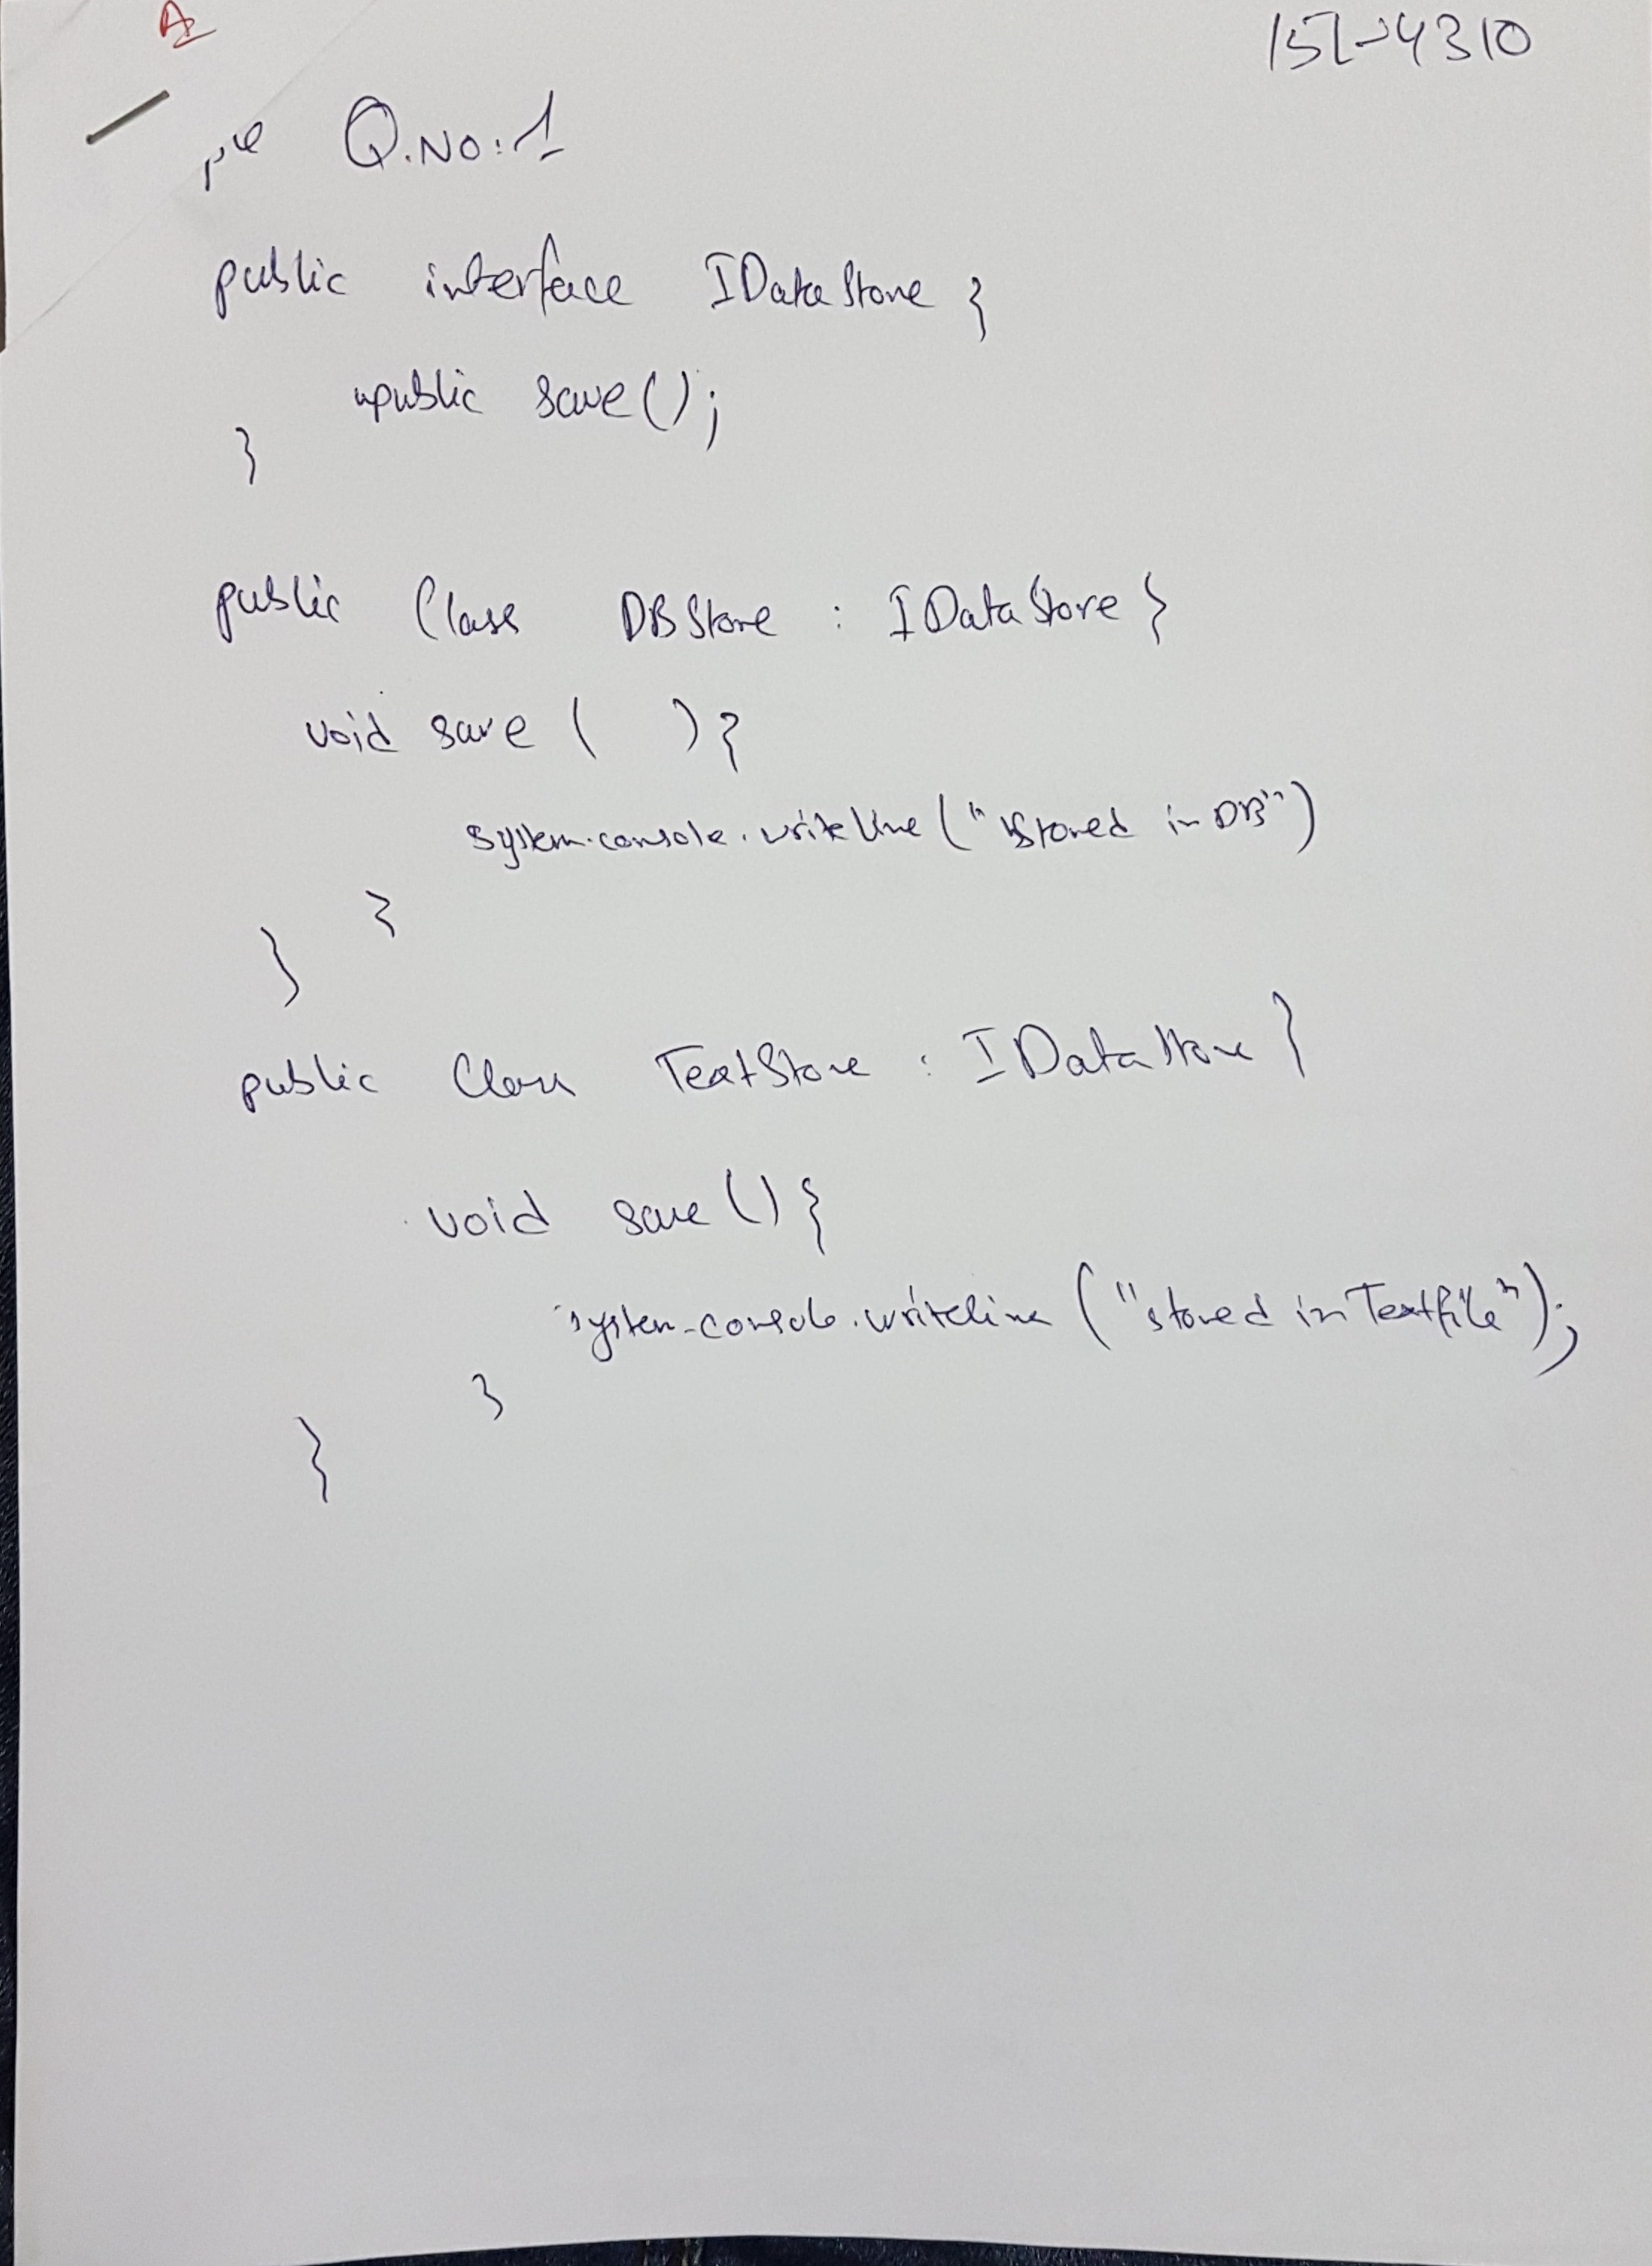 A
15L-4310
Q.No:1
public interface IDataStore {
public save();
}
public Class DBStore : IDataStore {
void save ( ) {
system.console.writeline ("stored in DB")
}
}
public Class TextStore : IDataStore {
void save () {
system.console.writeline ("stored in Textfile");
}
}